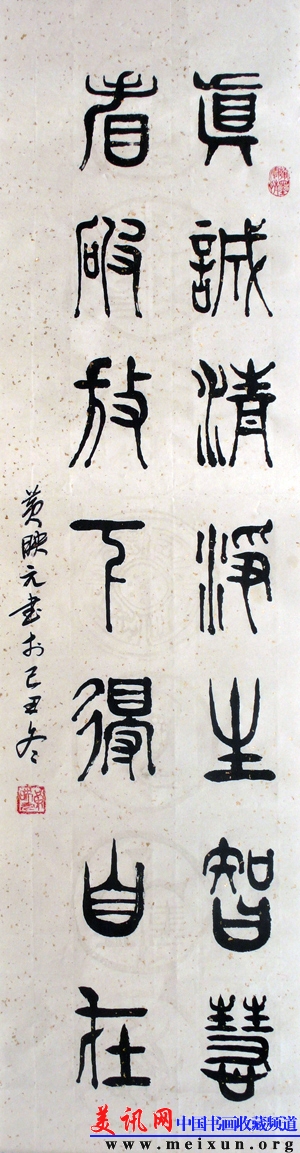 眞誠清淨生智慧
看破放下得自在
黄映元书於己丑冬
美讯网
中国书画收藏频道
www.meixun.org